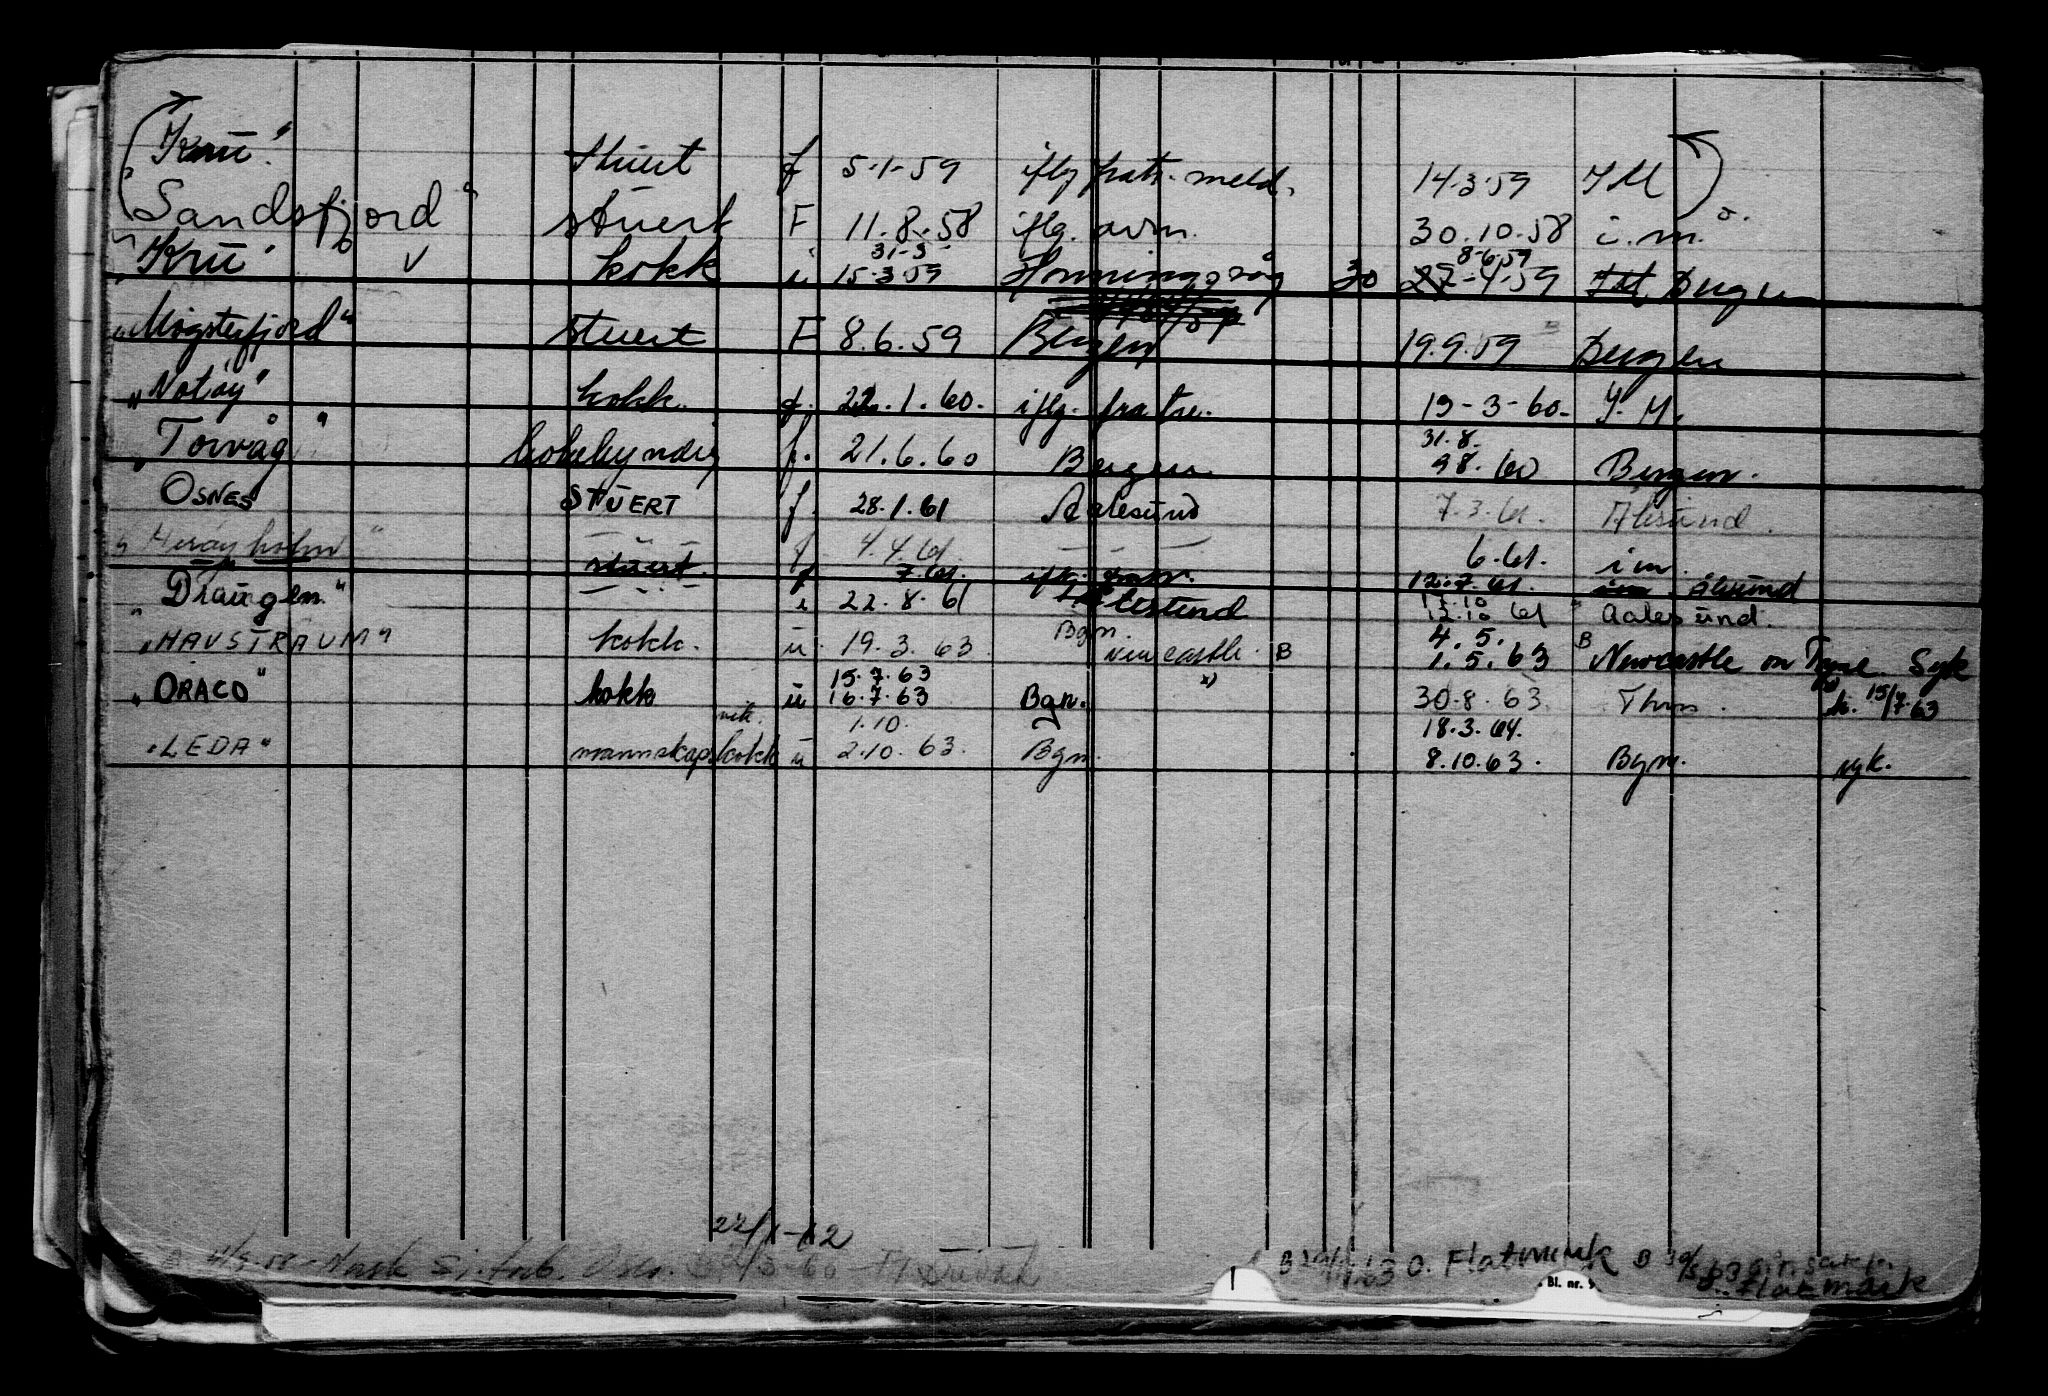 "Kru" stuert f 5.1.59 iflg patr. meld. 14.3.59 IM
"Sandsfjord" stuert F 11.8.58 iflg. avm. 30.10.58 i.m.
31-3 8-6-59
"Kru" v kokk i 15.3.59 Honningsvåg 30 27-4-59 IM Bergen
"Møgsterfjord" stuert F 8.6.59 Bergen 19.9.59 Bergen
"Notøy" kokk. f. 22.1.60. iflg. fratr. 19-3-60. I.M.
31.8.
"Torvåg" kokekyndig f. 21.6.60 Bergen. 98.60 Bergen.
OSNES STUERT f. 28.1.61 Aalesund 7.3.61. Ålesund.
"Herøyholm" f. 4.4.61. 6.61. im.
stuert. f 7.61. iflg. fratr. 12.7.61. im Ålesund
"Draugen" i 22.8.61 Aalesund 12.10 61 Aalesund.
Bgn. 4.5.
"HAVSTRAUM" kokk. u. 19.3.63. Newcastle. B 1.5.63 B Newcastle on Tyne. Syk
15.7.63 x)
"DRACO" kokk u 16.7.63 Bgn. 30.8.63. Thm. x) b. 15/7.63
vik. 1.10. 18.3.64.
"LEDA" mannskapskokk u 2.10.63. Bgn. 8.10.63. Bgn. syk.
22/1-62
Norsk Sj. forb. Oslo.
B 63 O. Flatmark B 30/5 63
Flatmark
Bl. nr. 9